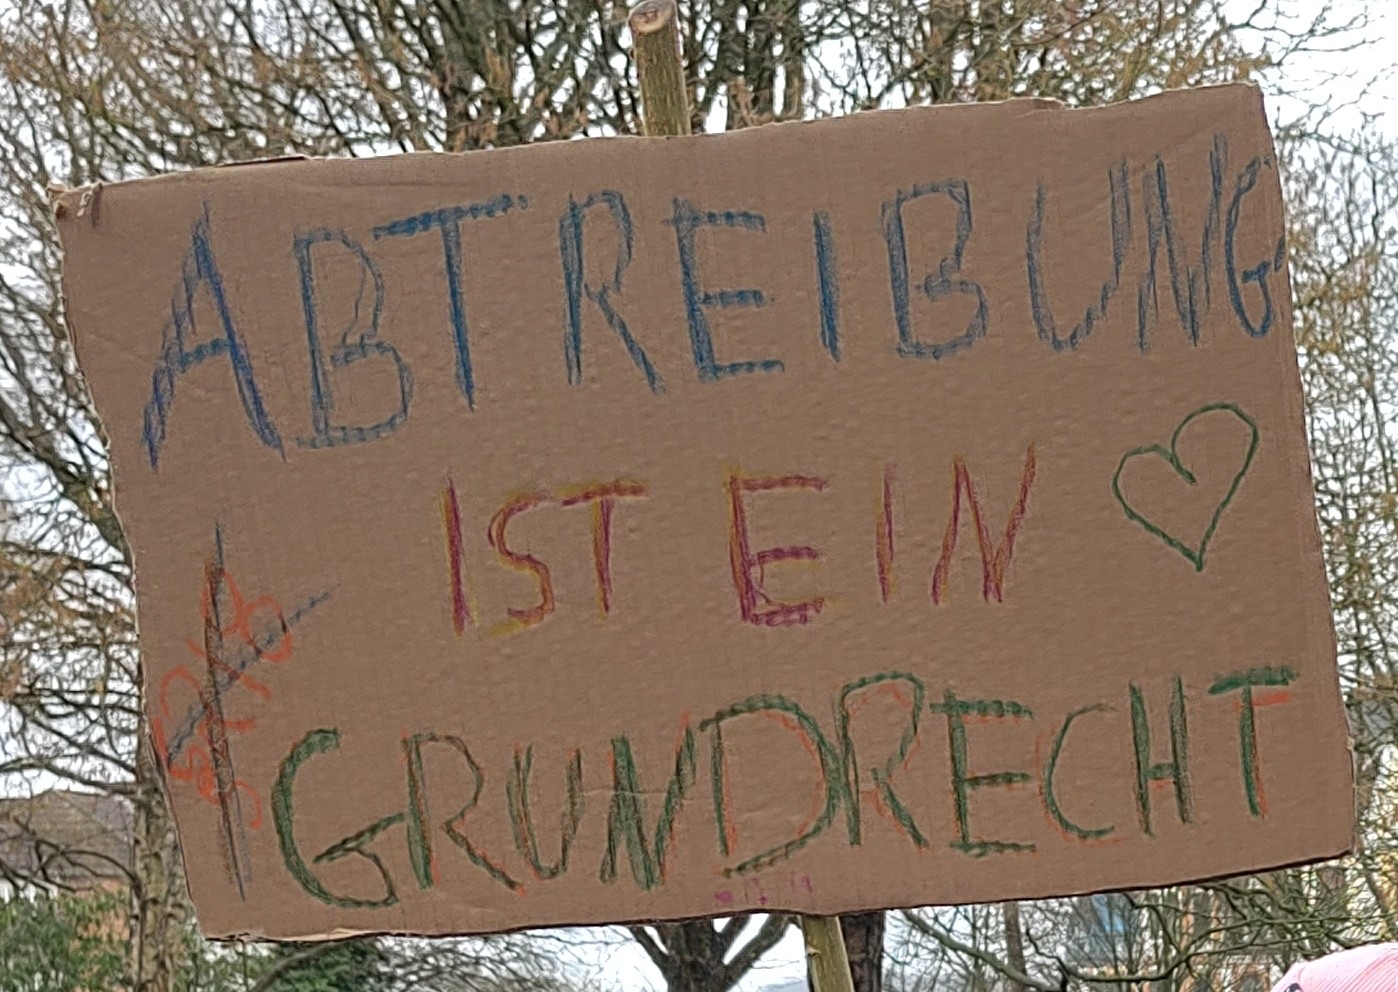 ABTREIBUNG
IST EIN
GRUNDRECHT
§218